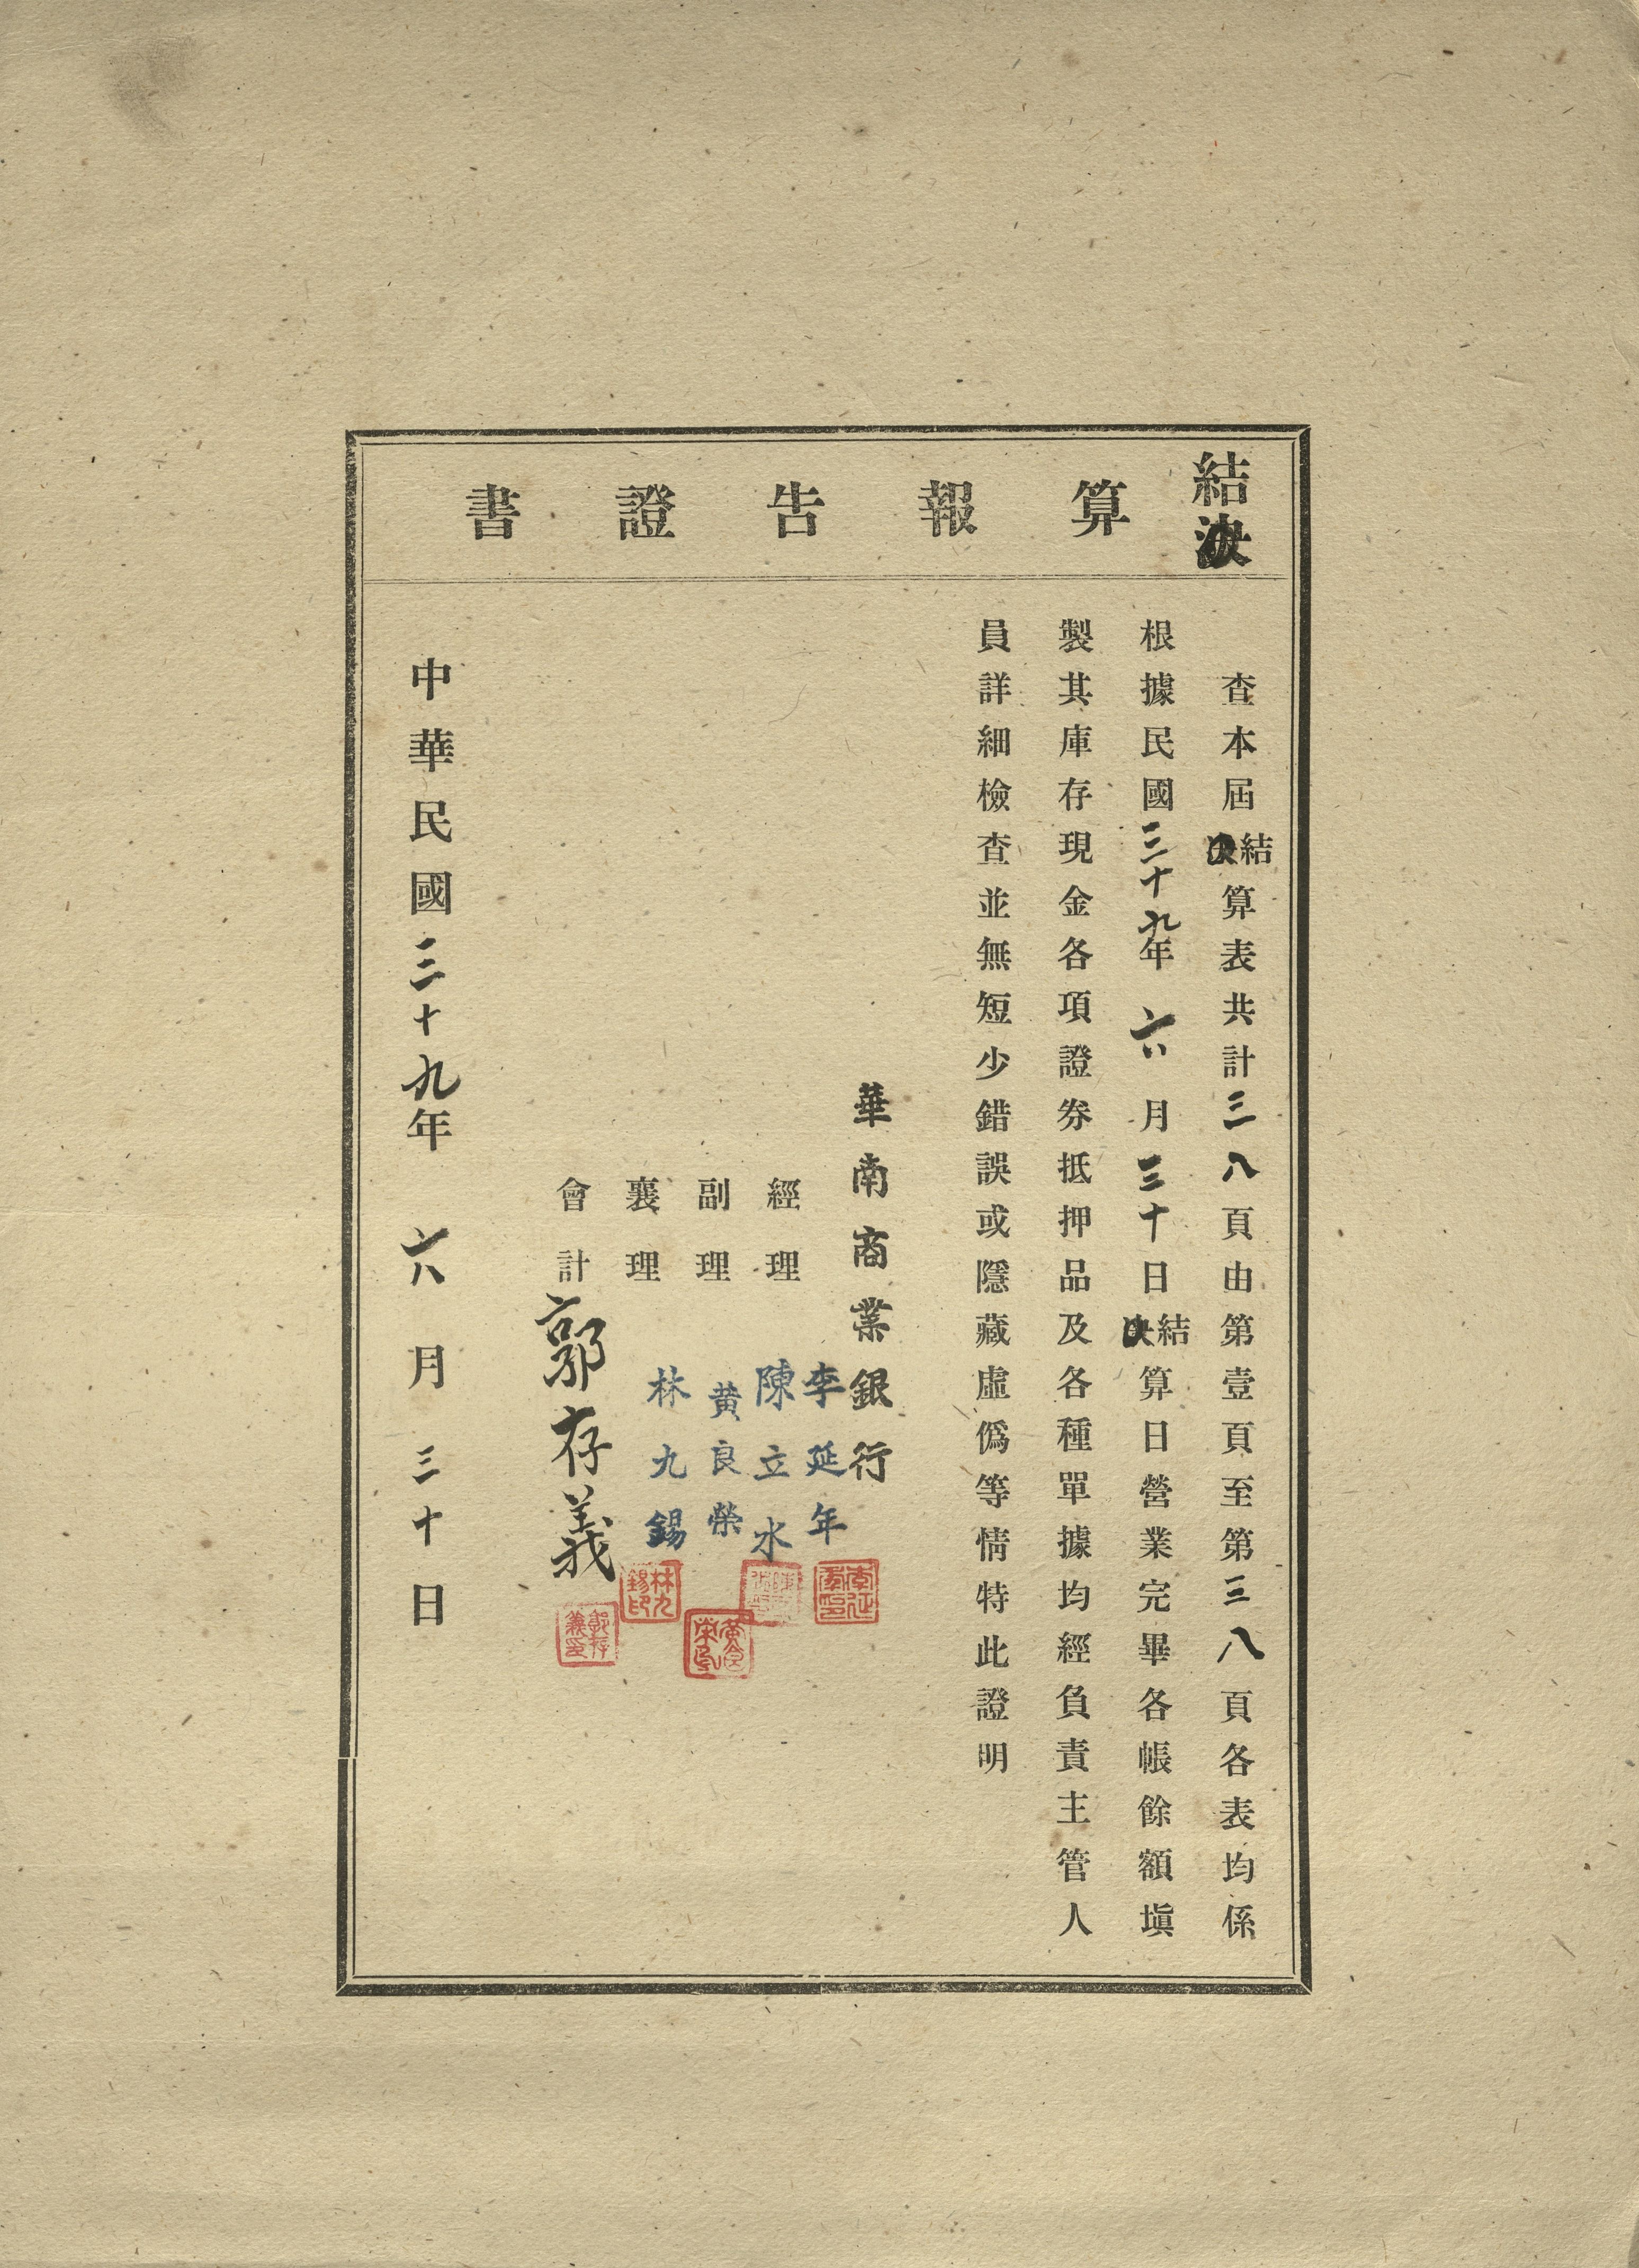 結決算報告證書
查本屆結決算表共計三八頁由第壹頁至第三八頁各表均係
根據民國三十九年六月三十日結決算日營業完畢各帳餘額塡
製其庫存現金各項證券抵押品及各種單據均經負責主管人
員詳細檢查並無短少錯誤或隱藏虛僞等情特此證明
華南商業銀行
李延年
經理 陳立水
副理 黃良榮
襄理 林九錫
會計 郭存義
林九錫印
中華民國三十九年六月三十日